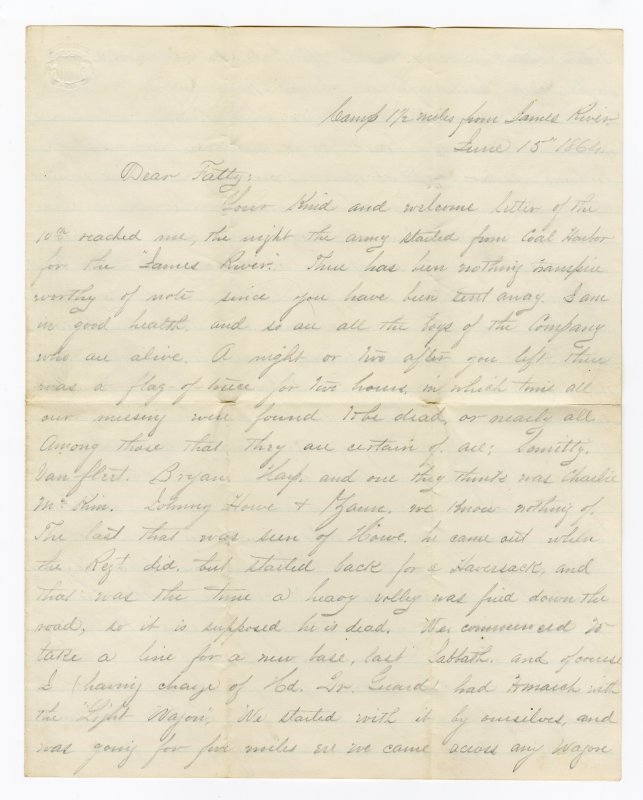 Camp 1 1/2 miles from James River
June 15" 1864.
Dear Fatty:
Your Kind and welcome letter of the
10th reached me, the night the army started from Coal Harbor
for the "James River." There has been nothing transpire
worthy of note since you have been sent away. I am
in good health. and so are all the boys of the Company
who are alive. A night or two after you left there
was a flag of truce for two hours, in which time all
our missing were found to be dead, or nearly all.
Among those that they are certain of. are;
Van flert. Bryan, Harp. and one they think was Charlie
Mc Kim. Johnny Howe & we know nothing of.
The last that was seen of Howe. he came out when
the Regt did, but started back for a Haversack, and
that was the time a heavy volley was fired down the
road, so it is supposed he is dead. We commenced to
take a line for a new base, last Sabbath. and of course
I (having charge of Hd. Qr. Guard) had to march with
the "Light Wagon", We started with it by ourselves, and
was going for five miles ere we came across any Wagon